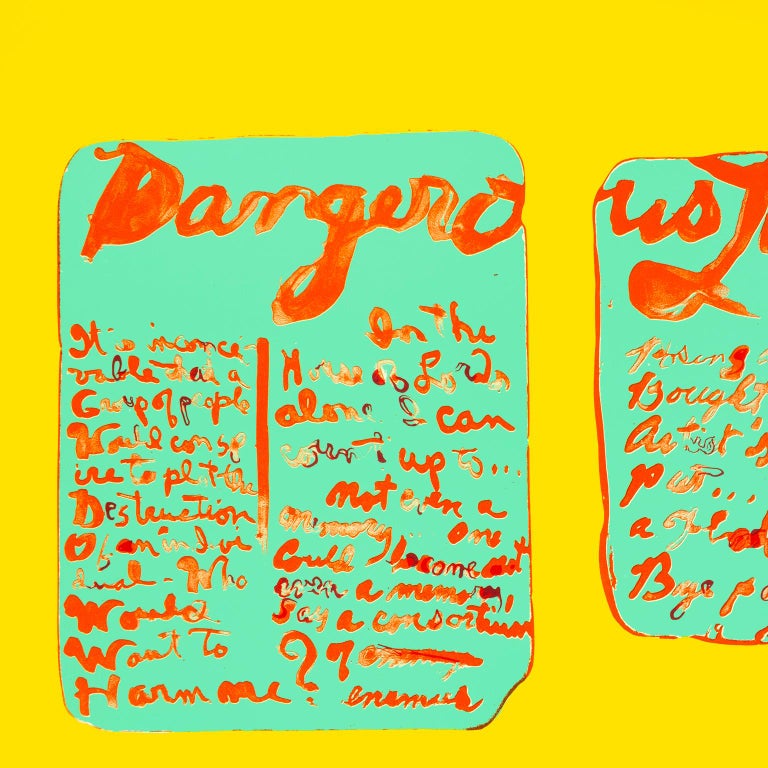 Dangero
It is inconce-
ivable that a
Group of people
Would consp
ire to plot the
Destruction
Of an indivi
dual - Who
Would
Want To
Harm me?
In the
House of Lords
alone I can
count up to...
Not even a
memory... One
Could become not
even a memory,
Say a consortium
? of enemies
us
Bought
Artist's
put...
a
Bye